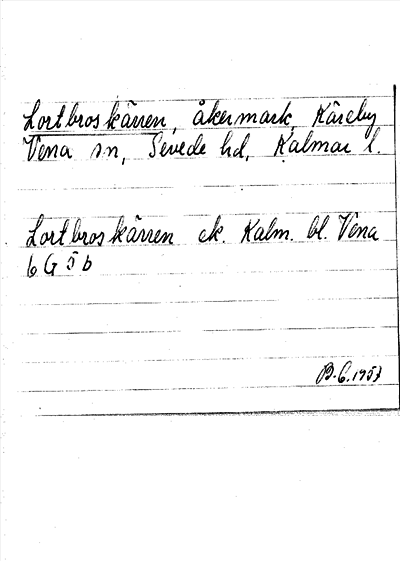 Lortbroskärren, åkermark, Kåreby
Vena sn, Sevede hd, Kalmar l.
Lortbroskärren ek. Kalm. bl. Vena
6 G 5 b
B.G. 1953